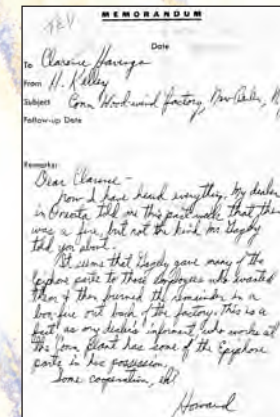 MEMORANDUM
Date
To Clarence Havenga
From H. Kelley
Subject Conn Woodwind factory, New Berlin, N
Follow-up Date
Remarks:
Dear Clarence –
Now I have heard everything. My dealer
in Oneonta told me this past week that there
was a fire, but not the kind Mr Gazley
told you about.
It seems that Gazley gave many of the
Epiphone parts to those employees who wanted
them & then burned the remainder in a
bon-fire out back of the factory. This is a
fact as my dealer's informant, who works at
the Conn plant has some of the Epiphone
parts in his possession.
Some cooperation, eh?
Howard